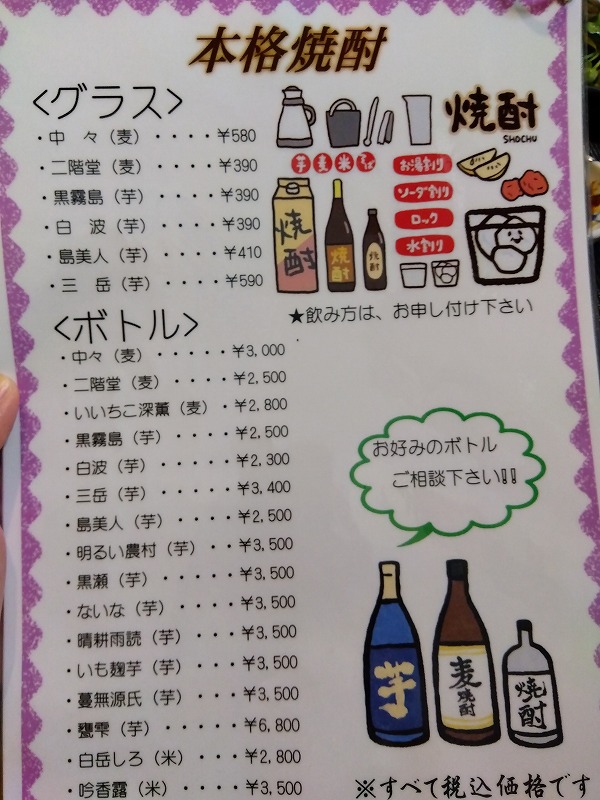 本格焼酎
<グラス>
・中 々(麦)・・・・¥580
・二階堂(麦)・・・・¥390
・黒霧島(芋)・・・・¥390
・白 波(芋)・・・・¥390
・島美人(芋)・・・・¥410
・三 岳(芋)・・・・¥590
焼酎
SHOCHU
芋 麦 米 そば
お湯割り
ソーダ割り
ロック
水割り
焼酎
焼酎
焼酎
★飲み方は、お申し付け下さい
<ボトル>
・中々(麦)・・・・・¥3,000
・二階堂(麦)・・・・¥2,500
・いいちこ深薫(麦)・¥2,800
・黒霧島(芋)・・・・¥2,500
・白波(芋)・・・・・¥2,300
・三岳(芋)・・・・・¥3,400
・島美人(芋)・・・・¥2,500
・明るい農村(芋)・・¥3,500
・黒瀬(芋)・・・・・¥3,500
・ないな(芋)・・・・¥3,500
・晴耕雨読(芋)・・・¥3,500
・いも麹芋(芋)・・・¥3,500
・蔓無源氏(芋)・・・¥3,500
・甕雫(芋)・・・・・¥6,800
・白岳しろ(米)・・・¥2,800
・吟香露(米)・・・・¥3,500
お好みのボトル
ご相談下さい!!
芋
麦焼酎
焼酎
※すべて税込価格です